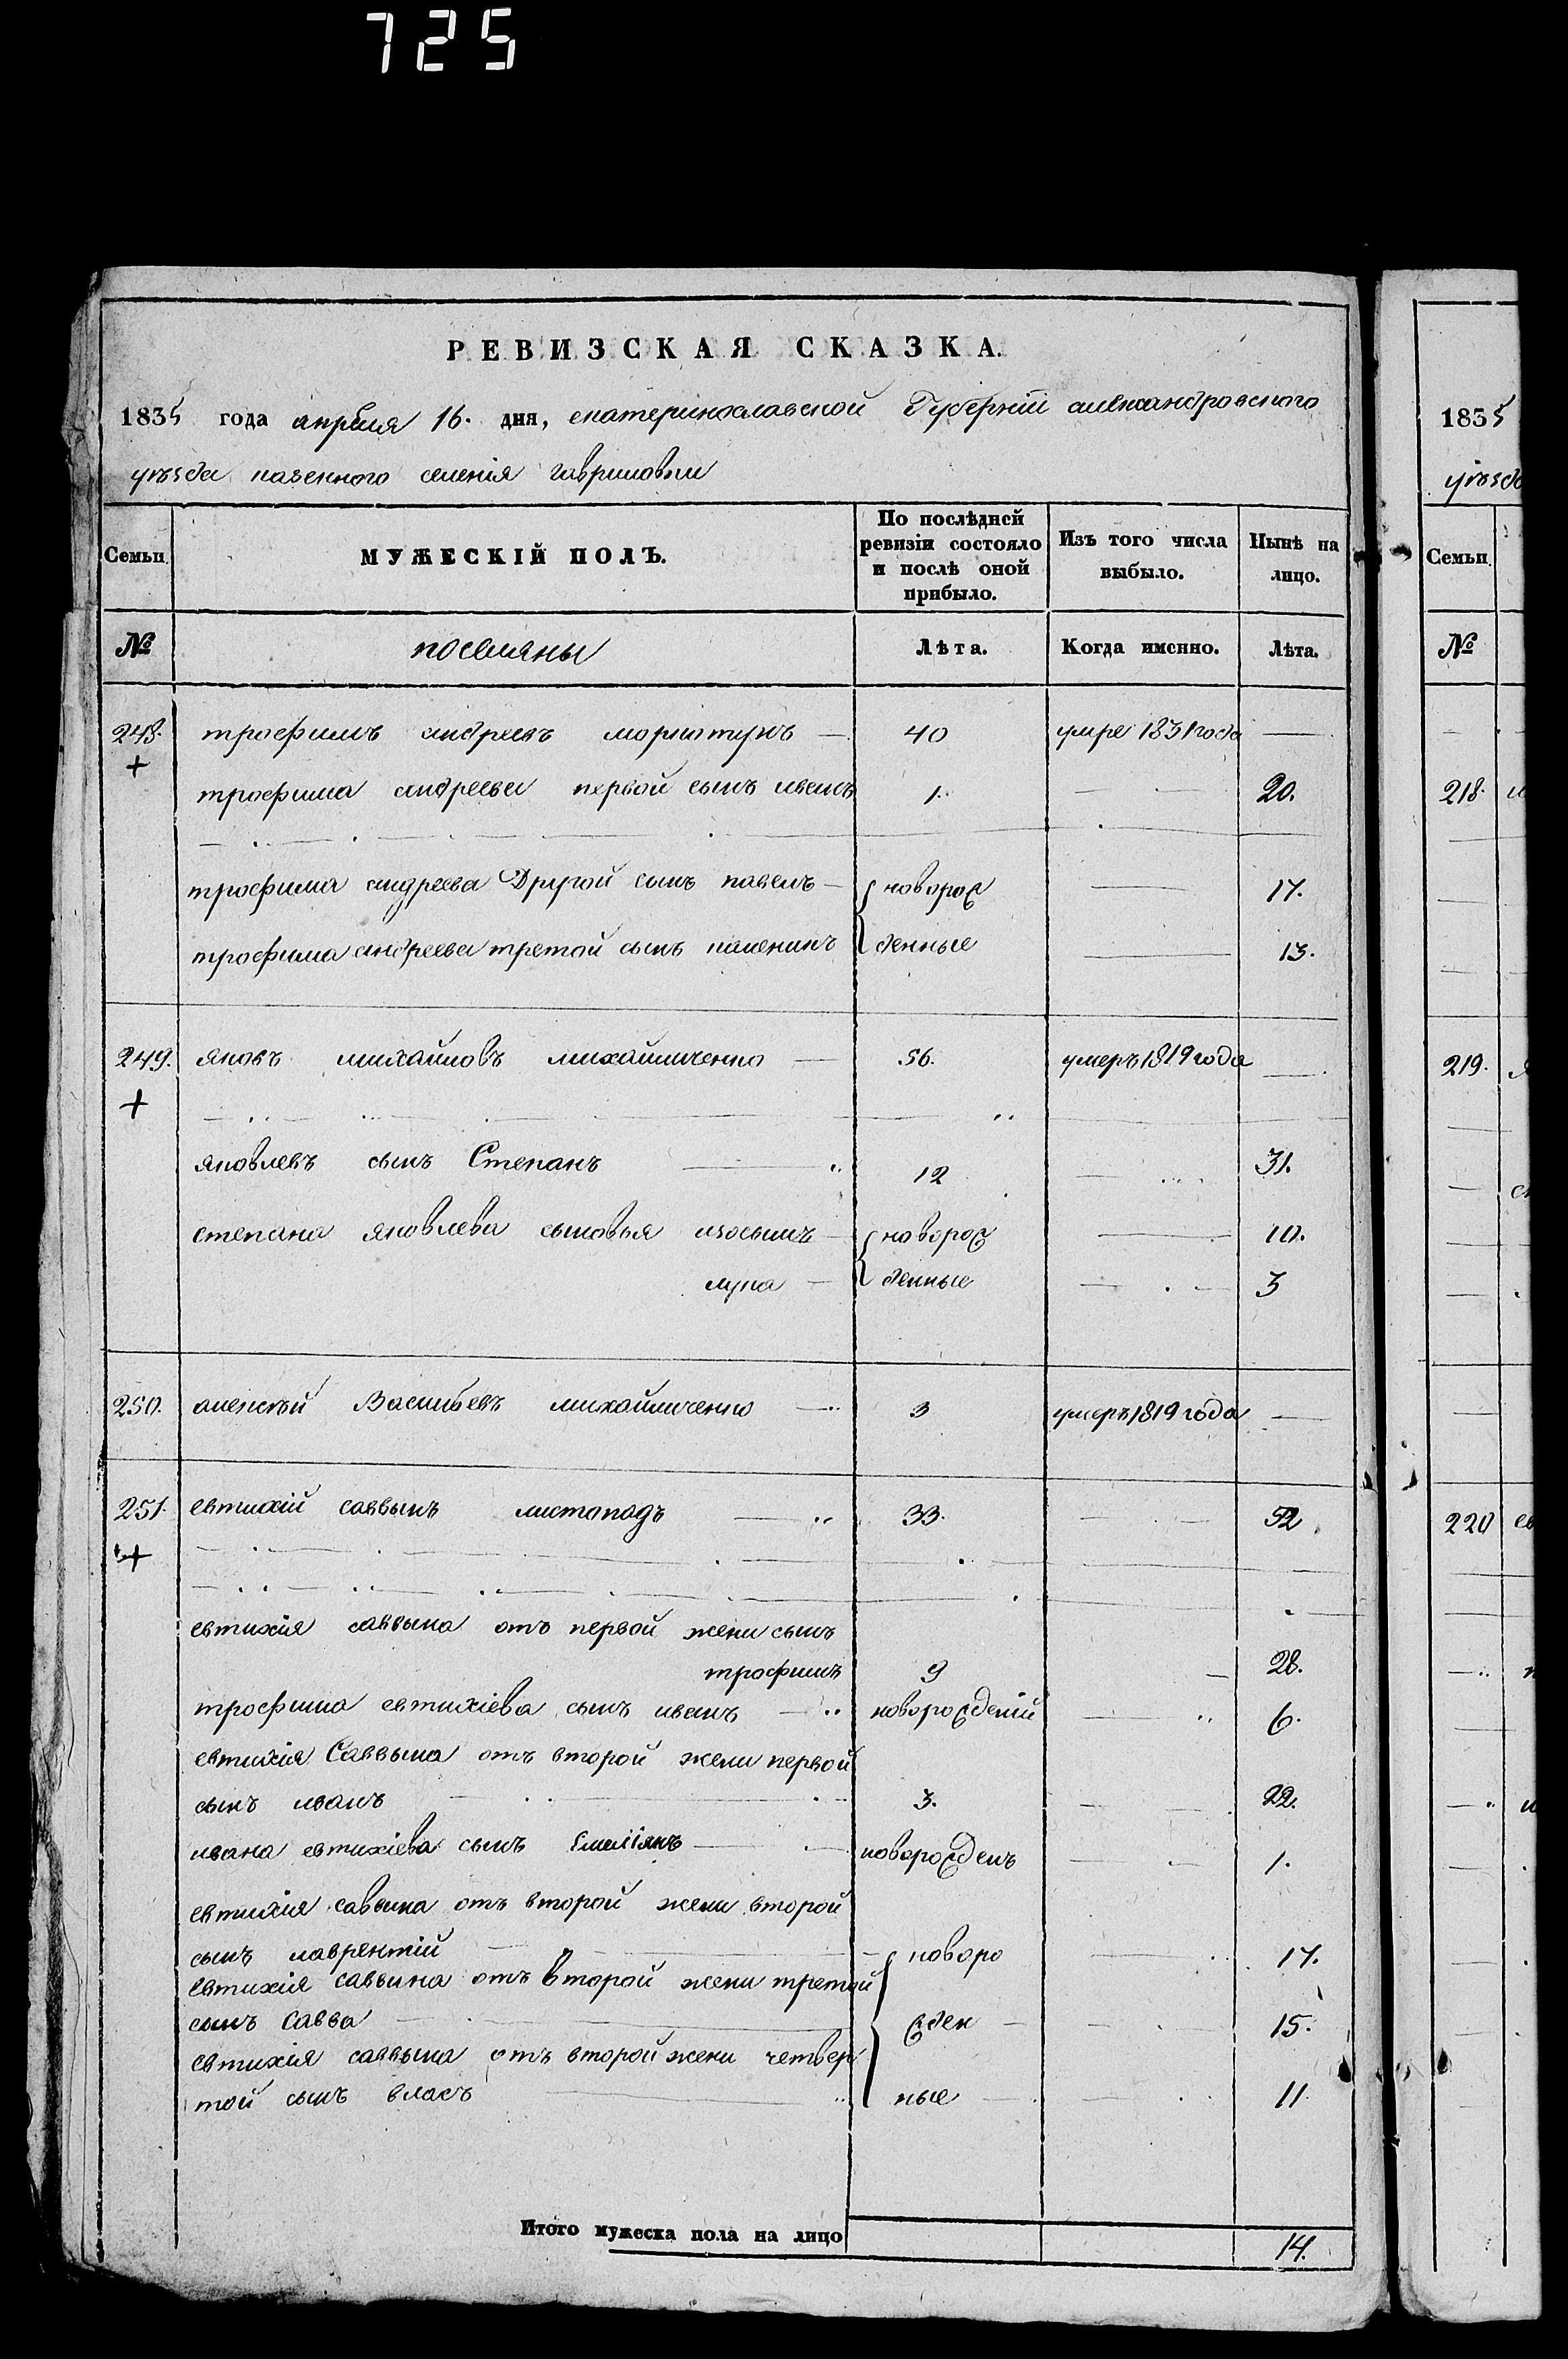 725
РЕВИЗСКАЯ СКАЗКА.
1835 года апреля 16. дня, екатеринославской Губернiи александровского
уѣзда казенного селенiя гавриловки
Семьи. МУЖЕСКIЙ ПОЛЪ. По послѣдней ревизiи состояло и послѣ оной прибыло. Изъ того числа выбыло. Нынѣ на лицо.
№ поселяны Лѣта. Когда именно. Лѣта.
248. трофимъ андреевъ 40 умре 1831 года
трофима андреева первой сынъ иванъ 1. 20.
трофима андреева Другой сынъ павелъ новорож 17.
трофима андреева третой сынъ денные 13.
249. яковъ михайловъ михайличенко 56. умеръ 1819 года
яковлевъ сынъ Степанъ 12 31.
степана яковлева сыновья новорож 10.
лука денные 3
250. алексѣй Васильевъ михайличенко 3 умеръ 1819 года
251. евтихiй саввынъ листопадъ 33. 52
евтихiя саввына отъ первой жени сынъ
трофимъ 9 28.
трофима евтихiева сынъ иванъ новорожденiй 6.
евтихiя Саввына отъ второй жени первой
сынъ иванъ 3. 22.
ивана евтихiева сынъ Емелiянъ новорожденъ 1.
евтихiя саввина отъ второй жени второй
сынъ лаврентiй новоро 17.
евтихiя саввина отъ второй жени третой
сынъ Савва жден 15.
евтихiя саввына отъ второй жени четвер
той сынъ власъ ные 11.
Итого мужеска пола на лицо 14.
1835
уѣзда
Семьи.
№
218.
219.
220